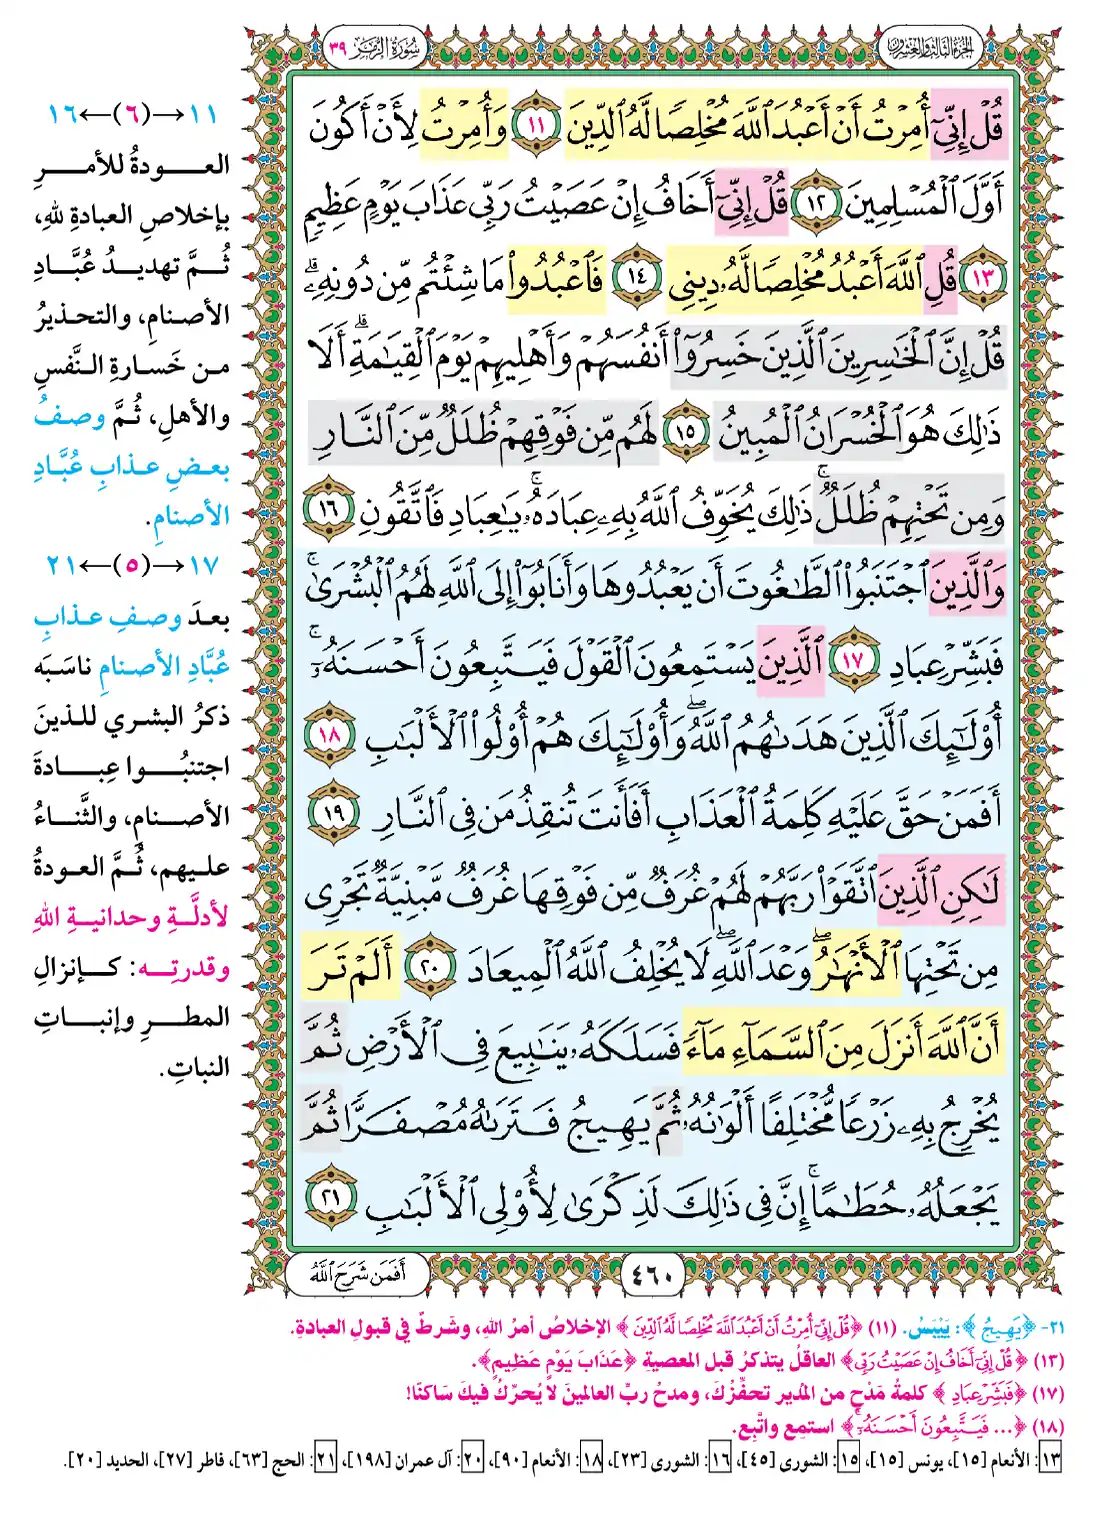 الجزء الثالث والعشرون
سُورَةُ الزُّمَر ٣٩
قُلْ إِنِّىٓ أُمِرْتُ أَنْ أَعْبُدَ ٱللَّهَ مُخْلِصًا لَّهُ ٱلدِّينَ ١١ وَأُمِرْتُ لِأَنْ أَكُونَ
أَوَّلَ ٱلْمُسْلِمِينَ ١٢ قُلْ إِنِّىٓ أَخَافُ إِنْ عَصَيْتُ رَبِّى عَذَابَ يَوْمٍ عَظِيمٍ
١٣ قُلِ ٱللَّهَ أَعْبُدُ مُخْلِصًا لَّهُۥ دِينِى ١٤ فَٱعْبُدُوا۟ مَا شِئْتُم مِّن دُونِهِۦ ۗ
قُلْ إِنَّ ٱلْخَٰسِرِينَ ٱلَّذِينَ خَسِرُوٓا۟ أَنفُسَهُمْ وَأَهْلِيهِمْ يَوْمَ ٱلْقِيَٰمَةِ ۗ أَلَا
ذَٰلِكَ هُوَ ٱلْخُسْرَانُ ٱلْمُبِينُ ١٥ لَهُم مِّن فَوْقِهِمْ ظُلَلٌ مِّنَ ٱلنَّارِ
وَمِن تَحْتِهِمْ ظُلَلٌ ۚ ذَٰلِكَ يُخَوِّفُ ٱللَّهُ بِهِۦ عِبَادَهُۥ ۚ يَٰعِبَادِ فَٱتَّقُونِ ١٦
وَٱلَّذِينَ ٱجْتَنَبُوا۟ ٱلطَّٰغُوتَ أَن يَعْبُدُوهَا وَأَنَابُوٓا۟ إِلَى ٱللَّهِ لَهُمُ ٱلْبُشْرَىٰ ۚ
فَبَشِّرْ عِبَادِ ١٧ ٱلَّذِينَ يَسْتَمِعُونَ ٱلْقَوْلَ فَيَتَّبِعُونَ أَحْسَنَهُۥٓ ۚ
أُو۟لَٰٓئِكَ ٱلَّذِينَ هَدَىٰهُمُ ٱللَّهُ ۖ وَأُو۟لَٰٓئِكَ هُمْ أُو۟لُوا۟ ٱلْأَلْبَٰبِ ١٨
أَفَمَنْ حَقَّ عَلَيْهِ كَلِمَةُ ٱلْعَذَابِ أَفَأَنتَ تُنقِذُ مَن فِى ٱلنَّارِ ١٩
لَٰكِنِ ٱلَّذِينَ ٱتَّقَوْا۟ رَبَّهُمْ لَهُمْ غُرَفٌ مِّن فَوْقِهَا غُرَفٌ مَّبْنِيَّةٌ تَجْرِى
مِن تَحْتِهَا ٱلْأَنْهَٰرُ ۖ وَعْدَ ٱللَّهِ ۖ لَا يُخْلِفُ ٱللَّهُ ٱلْمِيعَادَ ٢٠ أَلَمْ تَرَ
أَنَّ ٱللَّهَ أَنزَلَ مِنَ ٱلسَّمَآءِ مَآءً فَسَلَكَهُۥ يَنَٰبِيعَ فِى ٱلْأَرْضِ ثُمَّ
يُخْرِجُ بِهِۦ زَرْعًا مُّخْتَلِفًا أَلْوَٰنُهُۥ ثُمَّ يَهِيجُ فَتَرَىٰهُ مُصْفَرًّا ثُمَّ
يَجْعَلُهُۥ حُطَٰمًا ۚ إِنَّ فِى ذَٰلِكَ لَذِكْرَىٰ لِأُو۟لِى ٱلْأَلْبَٰبِ ٢١
٤٦٠
أَفَمَن شَرَحَ ٱللَّهُ
١١→(٦)←١٦
العودةُ للأمرِ
بإخلاصِ العبادةِ للهِ،
ثُمَّ تهديدُ عُبَّادِ
الأصنامِ، والتحذيرُ
من خَسارةِ النَّفسِ
والأهلِ، ثُمَّ وصفُ
بعضِ عذابِ عُبَّادِ
الأصنامِ.
١٧→(٥)←٢١
بعدَ وصفِ عذابِ
عُبَّادِ الأصنامِ ناسَبَه
ذكرُ البشري للذينَ
اجتنبُوا عِبادةَ
الأصنامِ، والثَّناءُ
عليهم، ثُمَّ العودةُ
لأدلَّةِ وحدانيةِ اللهِ
وقدرتِه: كإنزالِ
المطرِ وإنباتِ
النباتِ.
٢١- ﴿يَهِيجُ﴾: يَيْبَسُ. (١١) ﴿قُلْ إِنِّىٓ أُمِرْتُ أَنْ أَعْبُدَ ٱللَّهَ مُخْلِصًا لَّهُ ٱلدِّينَ﴾ الإخلاصُ أمرُ اللهِ، وشَرطٌ في قبولِ العبادةِ.
(١٣) ﴿قُلْ إِنِّىٓ أَخَافُ إِنْ عَصَيْتُ رَبِّى﴾ العاقلُ يتذكرُ قبل المعصيةِ ﴿عَذَابَ يَوْمٍ عَظِيمٍ﴾.
(١٧) ﴿فَبَشِّرْ عِبَادِ﴾ كلمةُ مَدْحٍ من المُديرِ تحفِّزُكَ، ومدحُ ربِّ العالمينَ لا يُحرِّكُ فيكَ ساكنًا!
(١٨) ﴿... فَيَتَّبِعُونَ أَحْسَنَهُۥٓ﴾ استمِع واتَّبِع.
١٣: الأنعام [١٥]، يونس [١٥]، ١٥: الشورى [٤٥]، ١٦: الشورى [٢٣]، ١٨: الأنعام [٩٠]، ٢٠: آل عمران [١٩٨]، ٢١: الحج [٦٣]، فاطر [٢٧]، الحديد [٢٠].